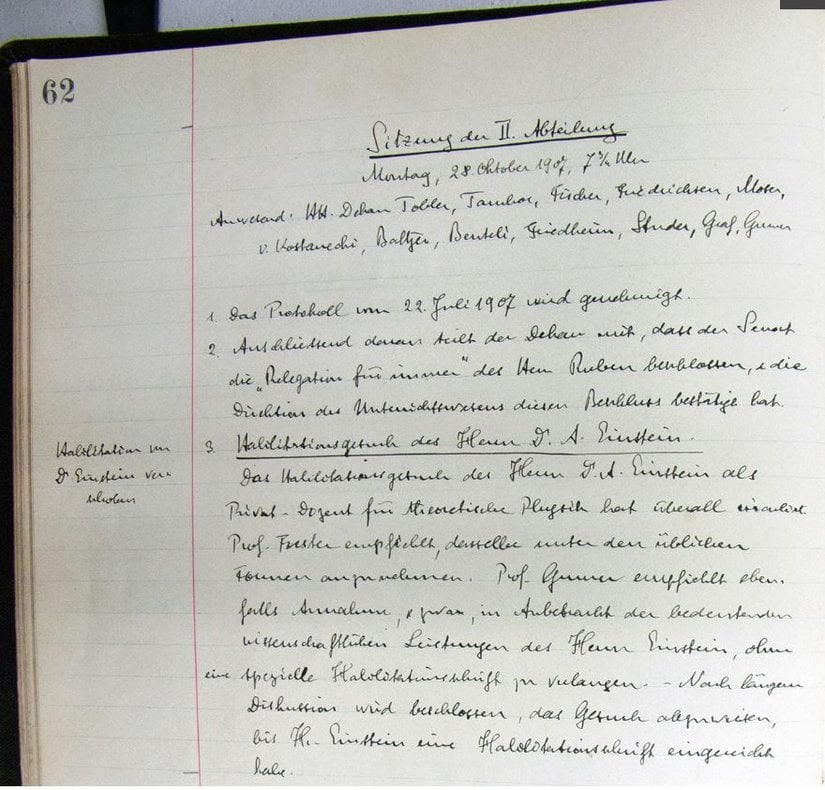 62
Sitzung der II. Abteilung
Montag, 28. Oktober 1907, 7 ¼ Uhr
Anwesend: HH. Dekan Tobler, Tambor, Fischer, Friedrichsen, Moser,
v. Kostanecki, Baltzer, Benteli, Friedheim, Studer, Graf, Gruner
1. Das Protokoll vom 22. Juli 1907 wird genehmigt.
2. Anschliessend daran teilt der Dekan mit, dass der Senat
die „Relegation für immer" des Herrn Ruben beschlossen, & die
Direktion des Unterrichtswesens diesen Beschluss bestätigt hat.
Habilitation von
Dr Einstein ver
schoben
3. Habilitationsgesuch des Herrn Dr. A. Einstein.
Das Habilitationsgesuch des Herrn Dr. A. Einstein als
Privat-Dozent für theoretische Physik hat überall circuliert.
Prof. Forster empfiehlt, dasselbe unter den üblichen
Formen anzunehmen. Prof. Gruner empfiehlt eben-
falls Annahme, & zwar, in Anbetracht der bedeutenden
wissenschaftlichen Leistungen des Herrn Einstein, ohne
eine spezielle Habilitationsschrift zu verlangen. – Nach längerer
Diskussion wird beschlossen, das Gesuch abzuweisen,
bis Hr. Einstein eine Habilitationsschrift eingereicht
habe.